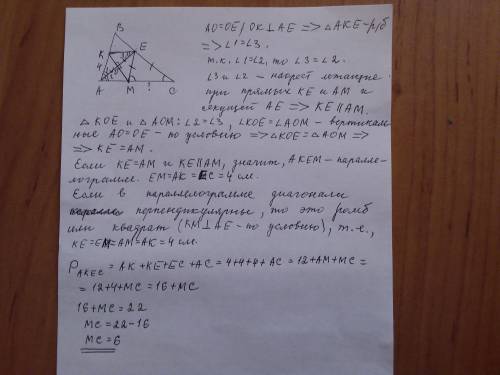 B
K
E
4
A
M
?
C
AO=OE, OK⊥AE => △AKE - р/б
=> ∠1=∠3.
т.к. ∠1=∠2, то ∠3=∠2.
∠3 и ∠2 - накрест лежащие
при прямых KE и AM и
секущей AE => KE∥AM.
△KOE и △AOM: ∠2=∠3, ∠KOE=∠AOM - вертикаль
ные AO=OE - по условию => △KOE=△AOM =>
=> KE=AM.
Если KE=AM и KE∥AM, значит, AKEM - паралле-
лограмм. EM=AK=EC=4 см.
Если в параллелограмме диагонали
перпендикулярны, то это ромб
или квадрат (KM⊥AE - по условию), т.е.,
KE=EM=AM=AK=4 см.
P AKEC = AK+KE+EC+AC=4+4+4+AC=12+AM+MC=
=12+4+MC=16+MC
16+MC=22
MC=22-16
MC=6